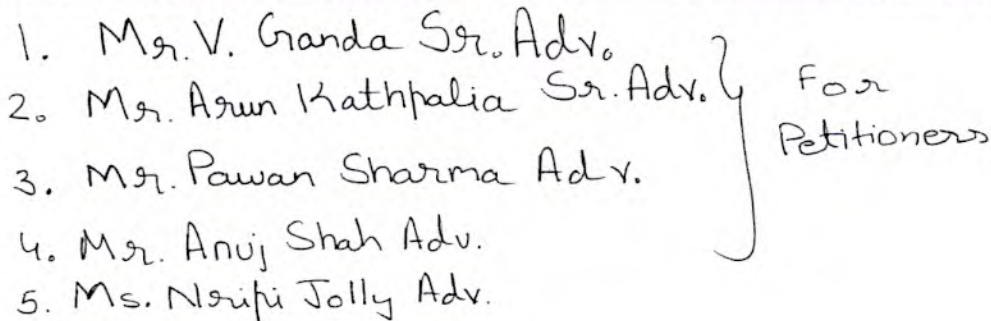 1. Mr. V. Ganda Sr. Adv.
2. Mr. Arun Kathpalia Sr. Adv.
3. Mr. Pawan Sharma Adv.
4. Mr. Anuj Shah Adv.
5. Ms. Nripi Jolly Adv.
For
Petitioners